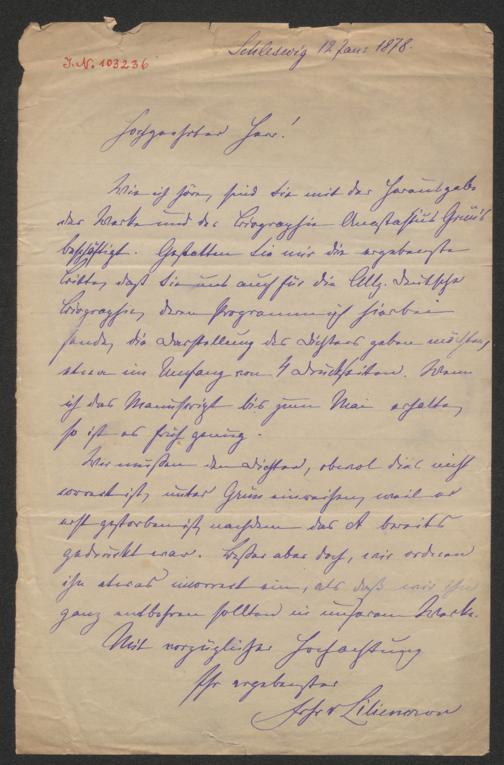 J.N. 103236
Schleswig 12 Jan: 1878.
Hochgeehrter Herr!
Wie ich höre, sind Sie mit der Herausgabe
der Werke und der Biographie Anastasius Grüns
beschäftigt. Gestatten Sie mir die ergebenste
Bitte, daß Sie uns auch für die Allg. Deutsche
Biographie, deren Programm ich hierbei
sende, die Darstellung des Dichters geben möchten,
etwa im Umfang von 4 Druckseiten. Wenn
ich das Manuscript bis zum Mai erhalte,
so ist es früh genug.
Wir müssen den Dichter, obwol dies nicht
correct ist, unter Grün einreihen, weil er
erst gestorben ist, nachdem das A bereits
gedruckt war. Besser aber doch, wir ordnen
ihn etwas incorrect ein, als daß wir ihn
ganz entbehren sollten in unserem Werke.
Mit vorzüglicher Hochachtung
Ihr ergebenster
Frhr v Liliencron